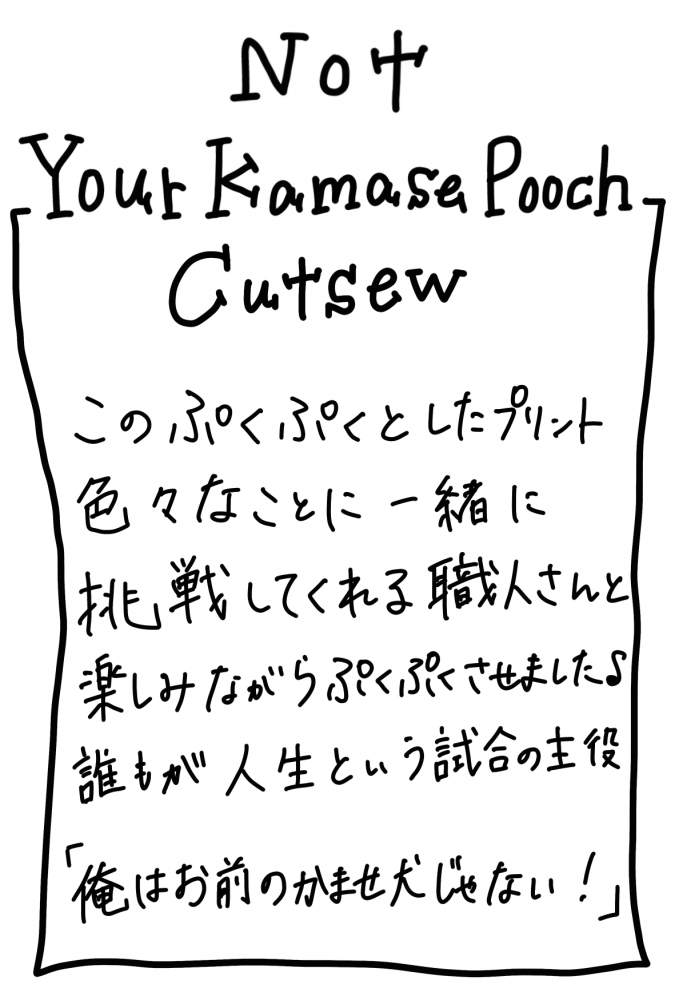 Not
Your Kamase Pooch
Cutsew
このぷくぷくとしたプリント
色々なことに一緒に
挑戦してくれる職人さんと
楽しみながらぷくぷくさせました♪
誰もが人生という試合の主役
「俺はお前のかませ犬じゃない!」